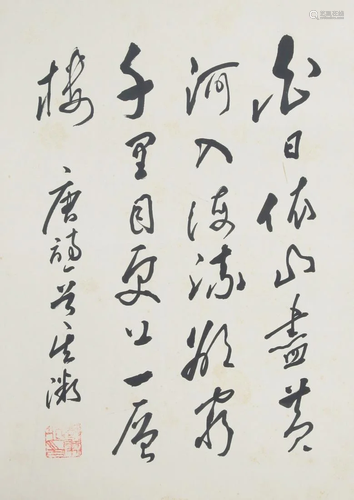 白日依山盡黄
河入海流欲窮
千里目更上一層
樓
唐詩